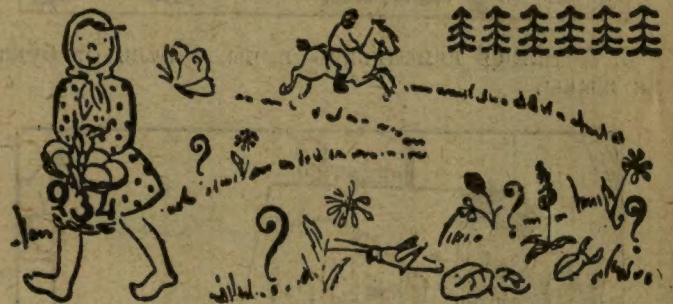 ?
934 ? ? ?